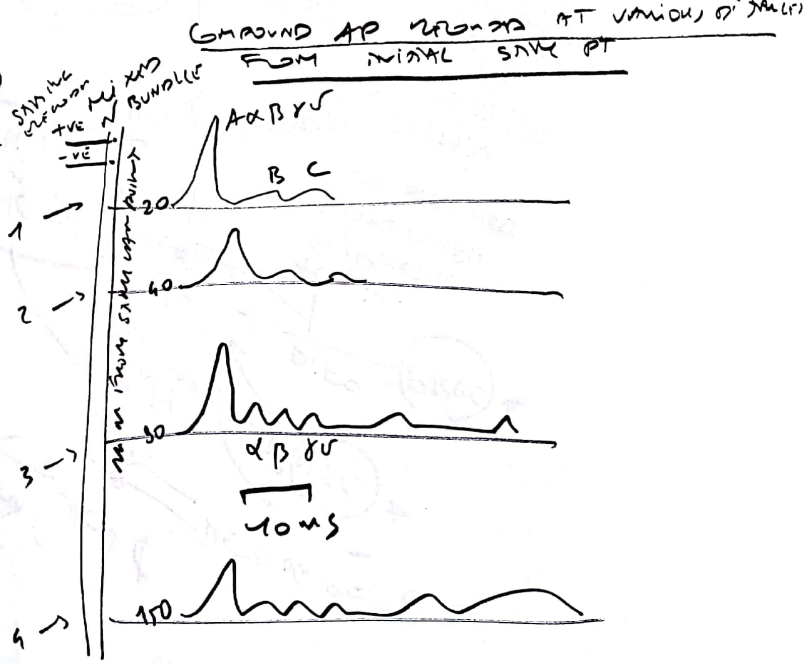 COMPOUND AP RECORDED AT VARIOUS DISTANCES
FROM INITIAL STIM PT
STIM
MIXED
N BUNDLE
+VE
-VE
Aαβγδ
B C
20
1
40
2
mm FROM STIMULATION POINT
80
αβγδ
3
10 ms
150
4